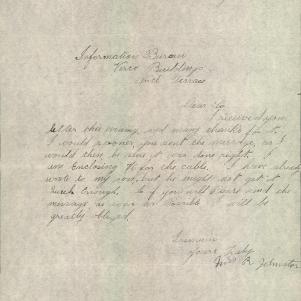 Information Bureau
Verco Building
North Terrace
Dear Sir
I received your
letter this morning, and many thanks for it.
I would sooner, you sent the message, as I
would then be sure it was done right. I
am Enclosing for the cable. I have already
wrote to my son, but he might not get it
Quick Enough. So if you will please send the
message as soon as Possible I will be
greatly obliged.
I remain
Yours Truly
Mrs R. Johnston